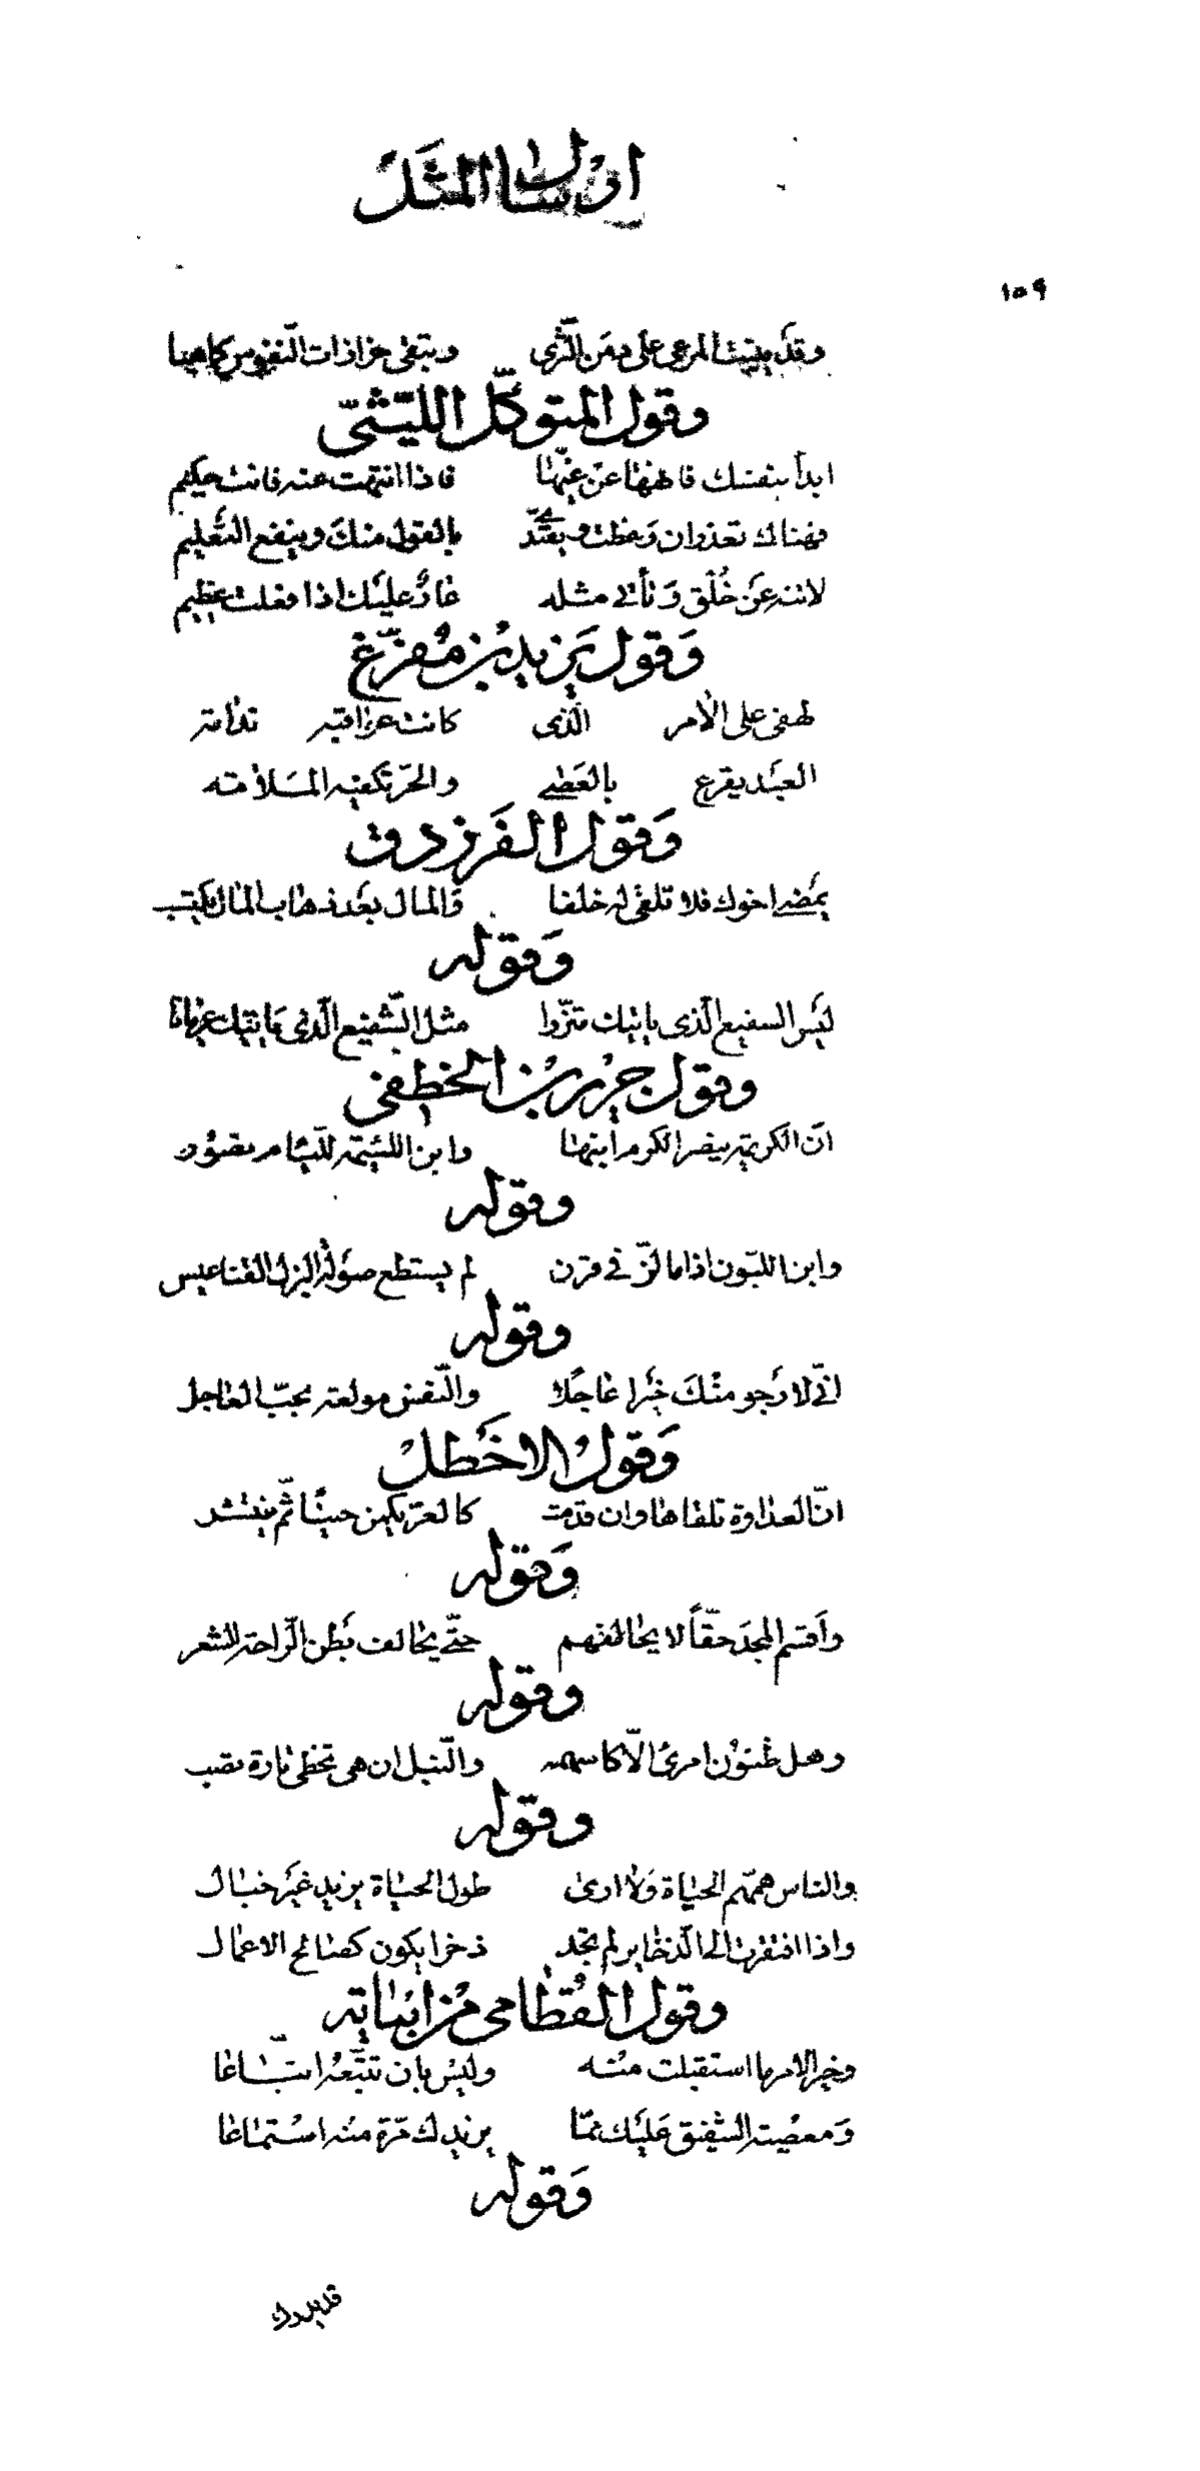 ارسال المثل
١٥٩
وقد ينبت المرعى على دمن الثرى وتبقى حزازات النفوس كما هيا
وقول المتوكّل اللّيثيّ
ابدأ بنفسك فانهها عن غيّها فاذا انتهت عنه فانت حكيم
فهناك تعذر ان وعظت ويقتدى بالقول منك وينفع التّعليم
لا تنه عن خُلق وتأتي مثله عارٌ عليك اذا فعلت عظيم
وَقول يَزيد بن مُفرّغ
لهفى على الأمر الّذى كانت عواقبه ندامة
العبَد يقرع بالعَصَى والحرّ تكفيه المَلامة
وَقول الفَرزدق
يمَضى اخوك فلا تلقى له خلفا وَالمال بعَد ذهاب المال يكتسب
وَقوله
ليَس الشفيع الّذى ياتيك متزّرا مثل الشّفيع الّذى يَاتيك عريانا
وقول جرير بن الخطفى
انّ الكريمة ينصر الكرم ابنها وابن اللئيمة للّئام نصوُر
وقوله
وابن اللبّون اذا ما لزّ في قرن لم يستطع صوَلة البزل القناعيس
وقوله
انّي لارَجو منْكَ خيَرا عاجَلا والنّفس مولعة بحبّ العاجل
وَقولُ الاخَطلْ
انّ العداوة تلقاها وان قدمت كالعرّ يكمن حينًا ثّم ينتشر
وَقوله
وأقسم المجدَ حقّاً لا يحالفهم حتّى يحالف بَطن الرّاحة الشعر
وقوله
وهل ظنوْن امرئ الّا كاسهمه والنّبل ان هى تخطى تارة تصب
وقوله
والناس همّهم الحياة وَلا ارى طول الحياة يزيد غيَر خبال
واذا افتقرت الى الذّخاير لم تجد ذخرا يكون كصالح الاعمال
وقول القُطامى منْ ابيَاته
وخير الامر ما استقبلت منْه وليْس بان تتبّعهُ اتّباعا
وَمعصية الشفيق عَليَك ممّا يزيدك مَرّة منه اسْتماعا
وَقوله